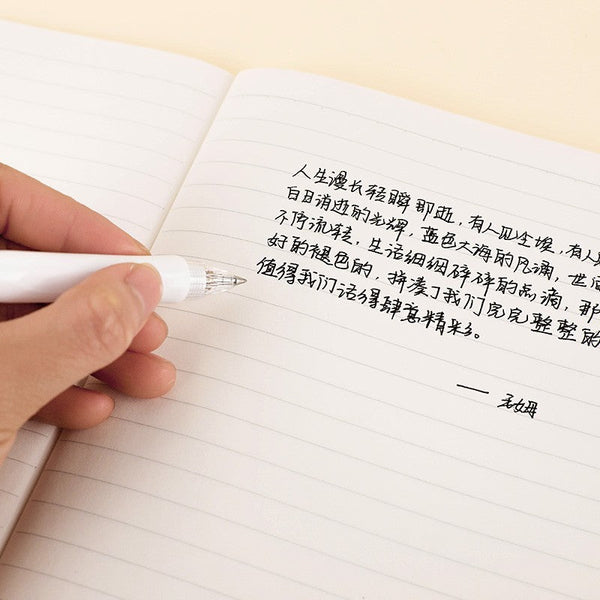 人生漫长轻瞬即逝，有人见尘埃，有人
白日消逝的光辉，蓝色大海的风滴，世
不停流转，生活细细碎碎的点滴，那
好的褪色的，拼凑了我们完完整整的
值得我们活得肆意精彩。
——毛姆